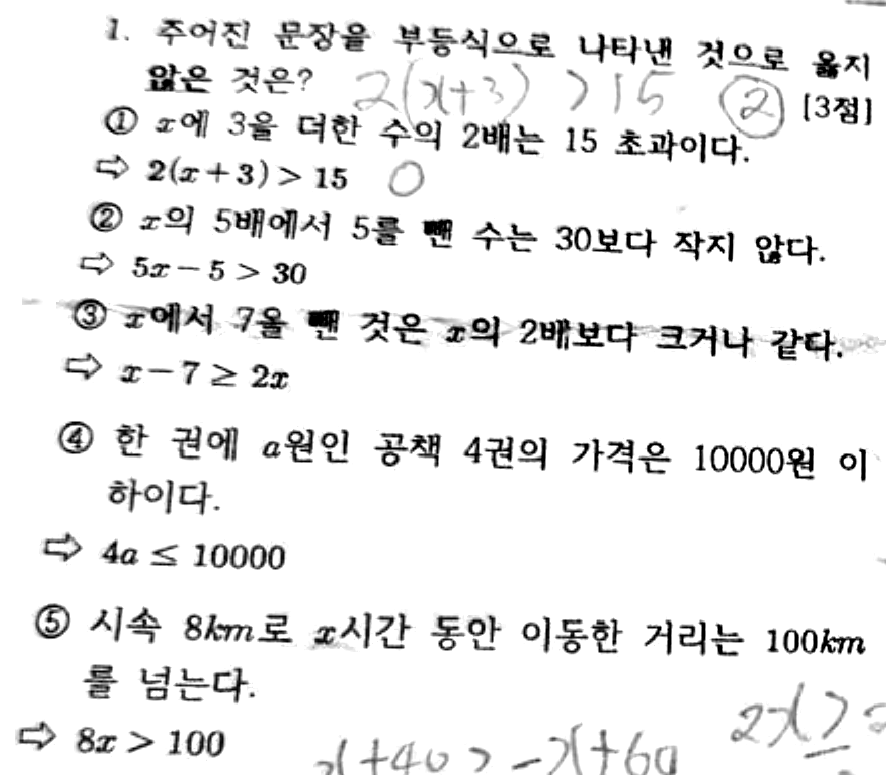 1. 주어진 문장을 부등식으로 나타낸 것으로 옳지
않은 것은? 2(x+3) > 15 ② [3점]
① x에 3을 더한 수의 2배는 15 초과이다.
⇨ 2(x+3) > 15 O
② x의 5배에서 5를 뺀 수는 30보다 작지 않다.
⇨ 5x-5 > 30
③ x에서 7을 뺀 것은 x의 2배보다 크거나 같다.
⇨ x-7 ≥ 2x
④ 한 권에 a원인 공책 4권의 가격은 10000원 이
하이다.
⇨ 4a ≤ 10000
⑤ 시속 8km로 x시간 동안 이동한 거리는 100km
를 넘는다.
⇨ 8x > 100
x+40 > -x+60 2x ≥